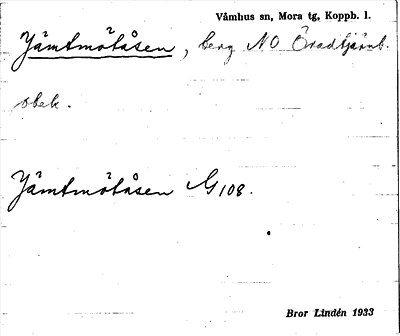 Våmhus sn, Mora tg, Koppb. l.
Jämtmötåsen, berg NO Öradtjärnb.
obek.
Jämtmötåsen G108.
Bror Lindén 1933